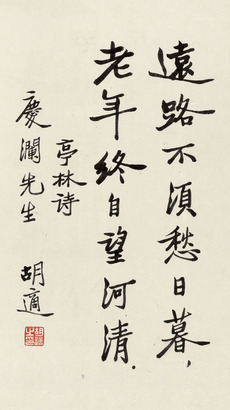 遠路不須愁日暮，
老年終自望河清．
亭林詩
慶瀾先生 胡適